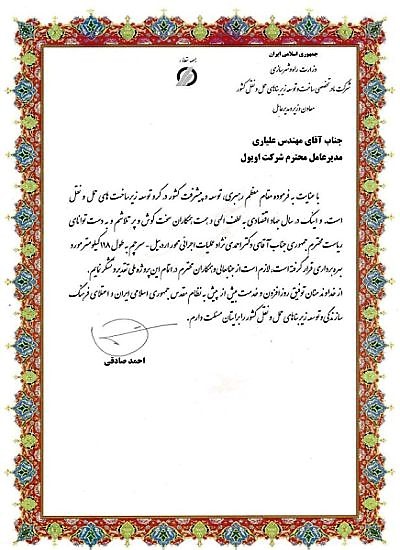 بسمه تعالی
جمهوری اسلامی ایران
وزارت راه و شهرسازی
شرکت مادر تخصصی ساخت و توسعه زیربناهای حمل و نقل کشور
معاون وزیر و مدیرعامل
جناب آقای مهندس علیاری
مدیرعامل محترم شرکت اویول
با عنایت به فرموده مقام معظم رهبری، توسعه و پیشرفت کشور در گرو توسعه زیرساخت های حمل و نقل
است. و اینک در سال جهاد اقتصادی به لطف الهی و همت همکاران سخت کوش و پرتلاشم و به دست توانای
ریاست محترم جمهوری جناب آقای دکتر احمدی نژاد عملیات اجرائی محور اردبیل - سرچم به طول ۱۱۸ کیلومتر مورد
بهره برداری قرار گرفته است. لازم است از جنابعالی و همکاران محترم در اتمام این پروژه ملی تقدیر و تشکر نمایم.
از خداوند منان توفیق روزافزون و خدمت بیش از پیش به نظام مقدس جمهوری اسلامی ایران و اعتلای فرهنگ
سازندگی و توسعه زیربناهای حمل و نقل کشور را برایتان مسئلت دارم.
احمد صادقی